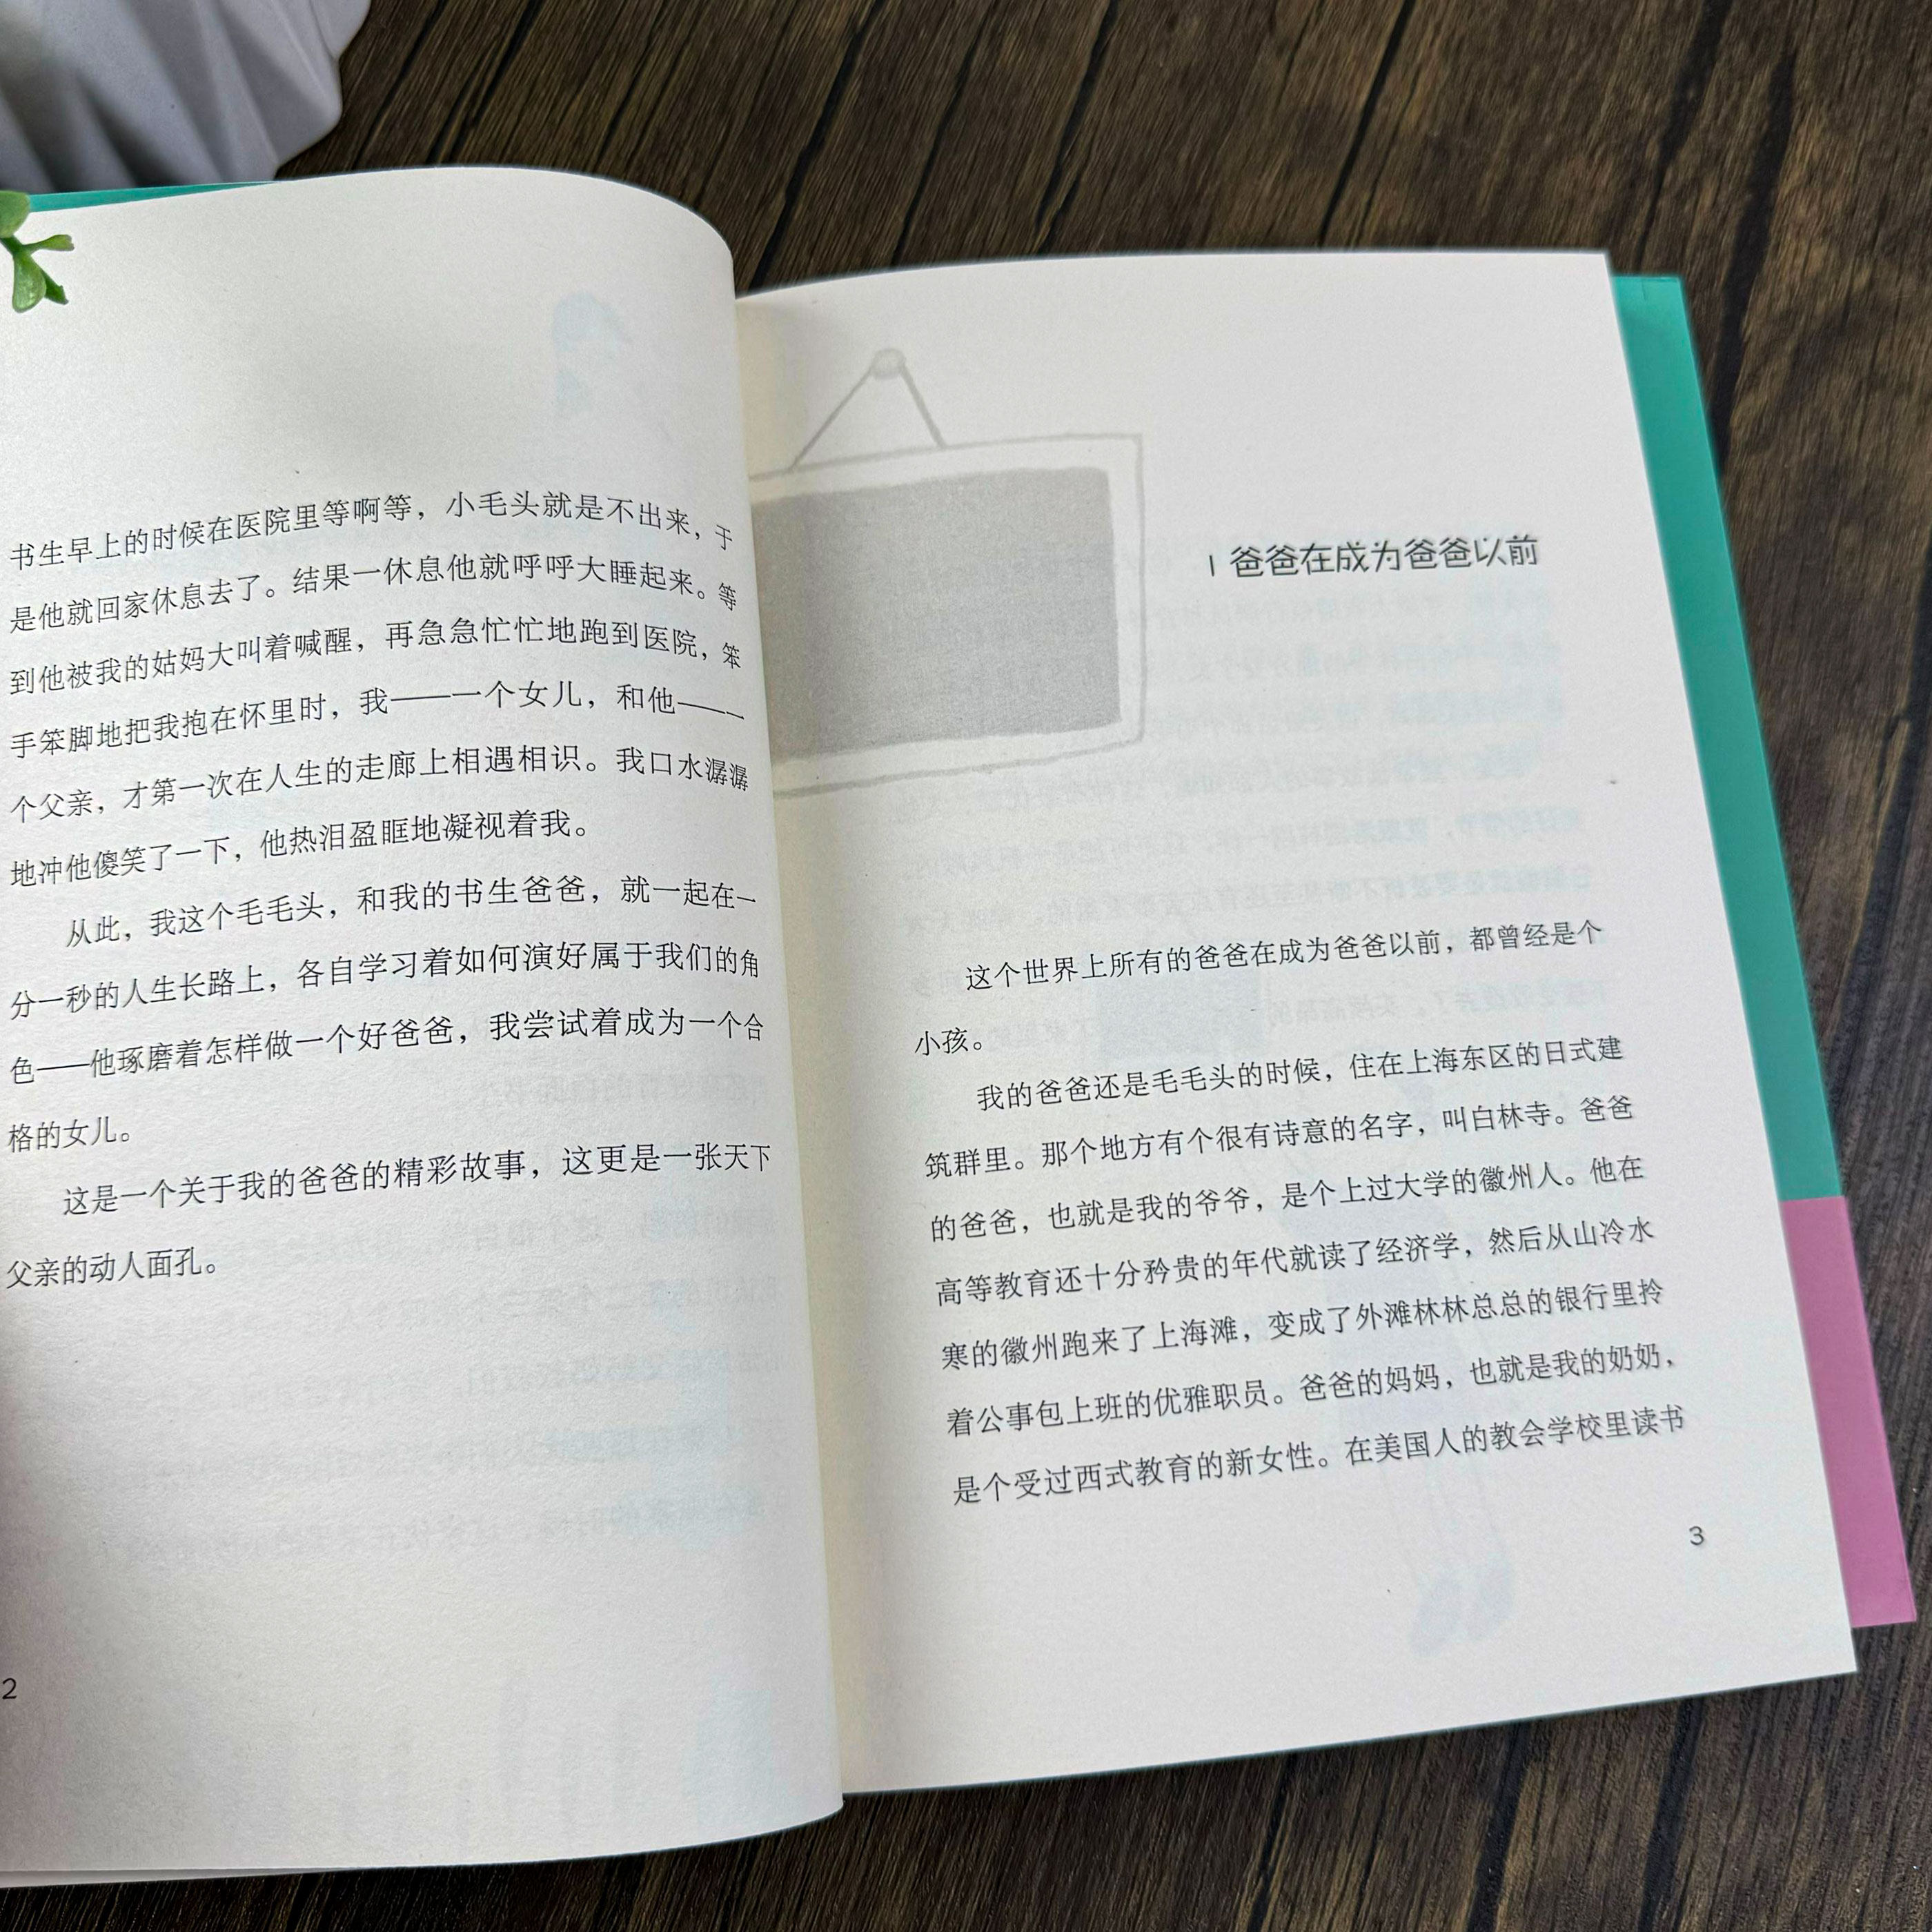 书生早上的时候在医院里等啊等，小毛头就是不出来，于
是他就回家休息去了。结果一休息他就呼呼大睡起来。等
到他被我的姑妈大叫着喊醒，再急急忙忙地跑到医院，笨
手笨脚地把我抱在怀里时，我——一个女儿，和他——一
个父亲，才第一次在人生的走廊上相遇相识。我口水潺潺
地冲他傻笑了一下，他热泪盈眶地凝视着我。
从此，我这个毛毛头，和我的书生爸爸，就一起在一
分一秒的人生长路上，各自学习着如何演好属于我们的角
色——他琢磨着怎样做一个好爸爸，我尝试着成为一个合
格的女儿。
这是一个关于我的爸爸的精彩故事，这更是一张天下
父亲的动人面孔。
2
1 爸爸在成为爸爸以前
这个世界上所有的爸爸在成为爸爸以前，都曾经是个
小孩。
我的爸爸还是毛毛头的时候，住在上海东区的日式建
筑群里。那个地方有个很有诗意的名字，叫白林寺。爸爸
的爸爸，也就是我的爷爷，是个上过大学的徽州人。他在
高等教育还十分矜贵的年代就读了经济学，然后从山冷水
寒的徽州跑来了上海滩，变成了外滩林林总总的银行里拎
着公事包上班的优雅职员。爸爸的妈妈，也就是我的奶奶，
是个受过西式教育的新女性。在美国人的教会学校里读书
3